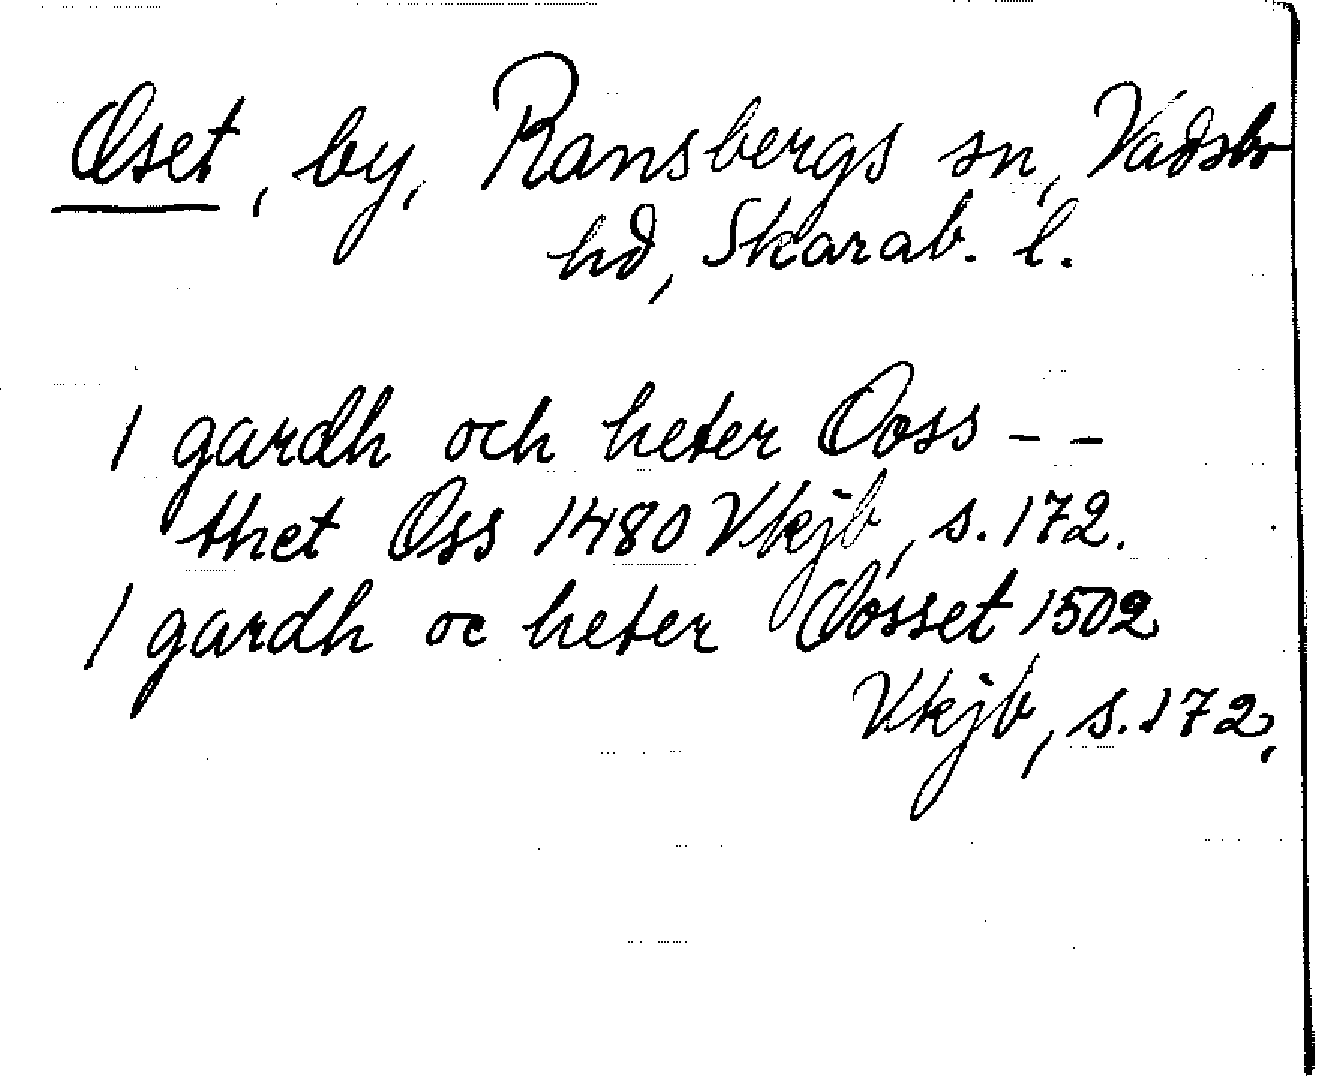 Oset, by, Ransbergs sn, Vadsbo
hd, Skarab. l.
1 gardh och heter Ooss - -
thet Oss 1480 Vkjb, s. 172.
1 gardh oc heter Oosset 1502
Vkjb, s. 172.